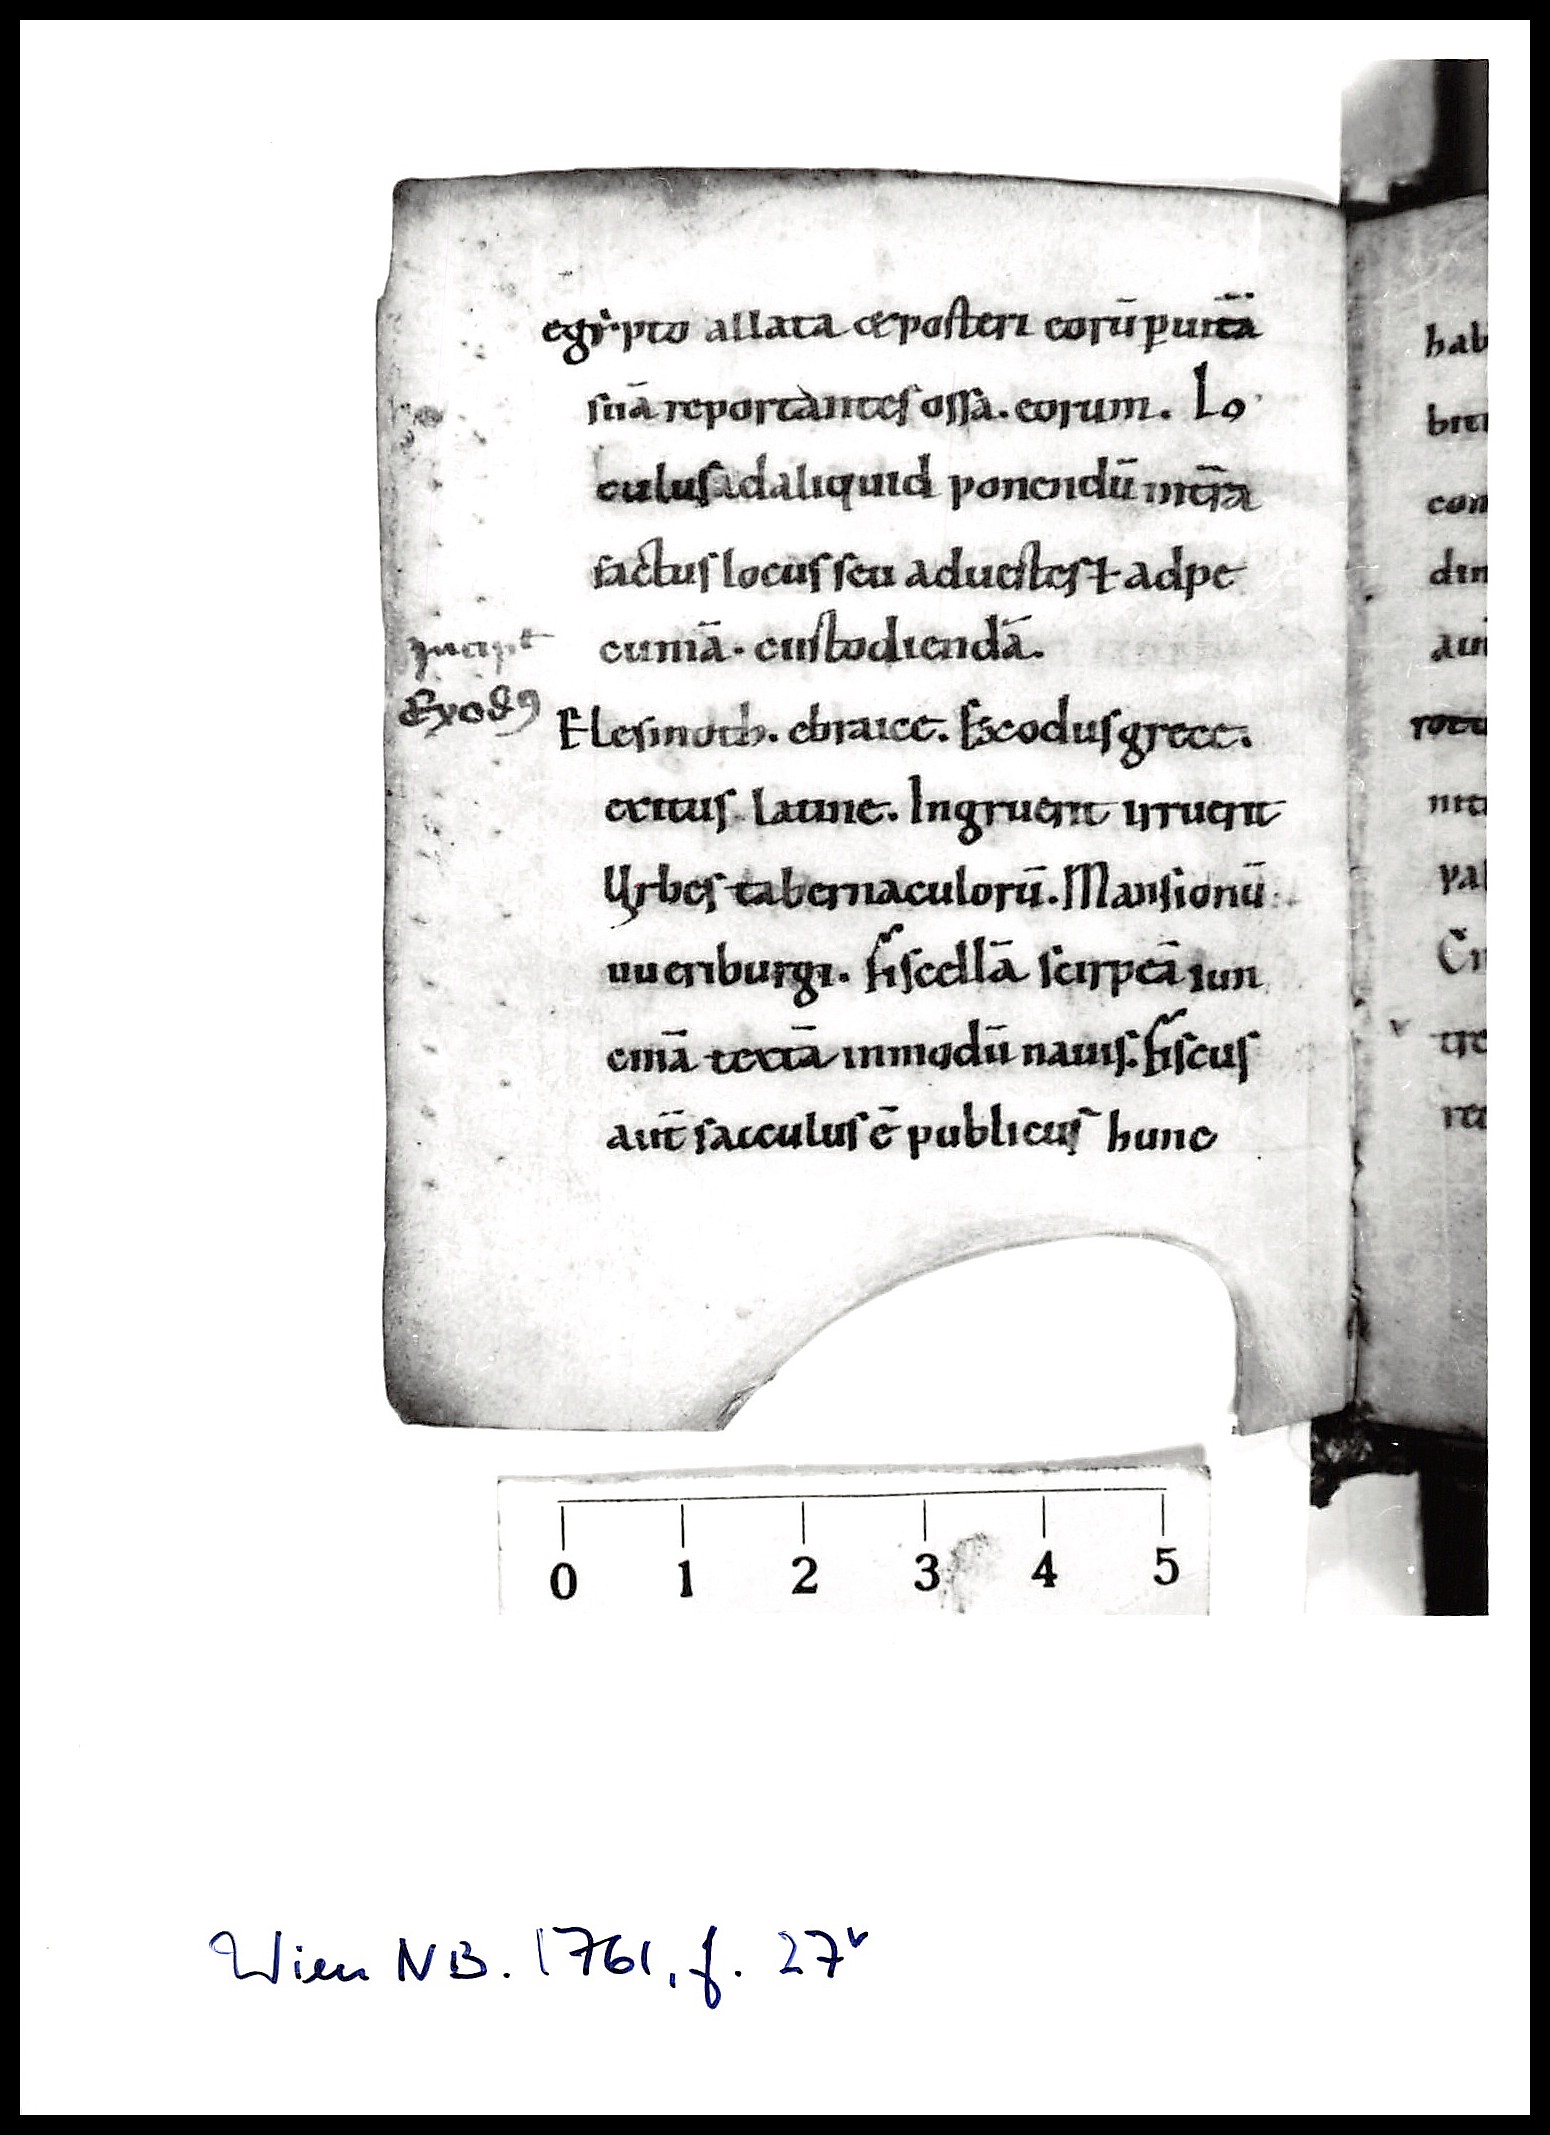 egypto allata & posteri eorū p uitā
suā reportantes ossa. eorum. Lo
culus ad aliquid ponendū in t̄ra
factus locus seu ad uestes ł ad pe
cuniā. custodiendā.
Incip̄t
Exodꝰ
Elesmoth. ebraice. Exodus grece.
exitus latine. Ingruerit irruerit
Urbes tabernaculorū. Mansionū
uueriburgi. Fiscellā scirpeā iun
cinā textā in modū nauis. Fiscus
aut̄ sacculus ē publicus hunc
hab
bre
con
din
aui
pal
tre
0 1 2 3 4 5
Wien NB. 1761, f. 27v